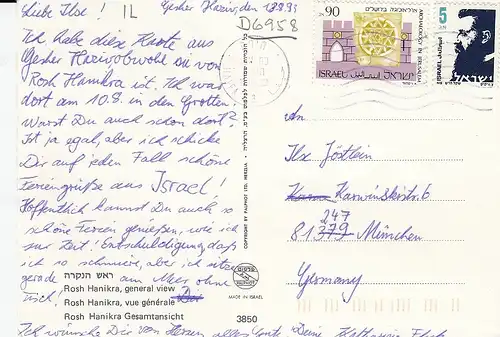 Liebe Ilse!
IL
Gesher Haziw, den
D6958
Ich habe diese Karte aus
Gesher Haziw, obwohl du von
Rosh Hanikra ist. Ich war
dort am 10.8. in den Grotten.
Warst Du auch schon dort?
Ist ja egal, aber ich schicke
Dir auf jeden Fall schöne
Feriengrüße aus Israel!
Hoffentlich kannst Du auch so
schöne Ferien genießen, wie ich
zur Zeit! Entschuldigung, daß
ich so schmiere, aber ich sitze
gerade am Meer ohne
Tisch!
ראש הנקרה
Rosh Hanikra, general view
Rosh Hanikra, vue générale
Rosh Hanikra Gesamtansicht
Ich wünsche Dir von Herzen alles Gute! Deine Katharina
COPYRIGHT BY PALPHOT LTD. HERZLIA
MADE IN ISRAEL
3850
90
ISRAEL إسرائيل ישראל
ARCHAEOLOGY IN JERUSALEM
ארכיאולוגיה בירושלים
5
ISRAEL
ישראל
An
Ilse Jöstlein
Karwinskistr. 6
247
81379 München
Germany